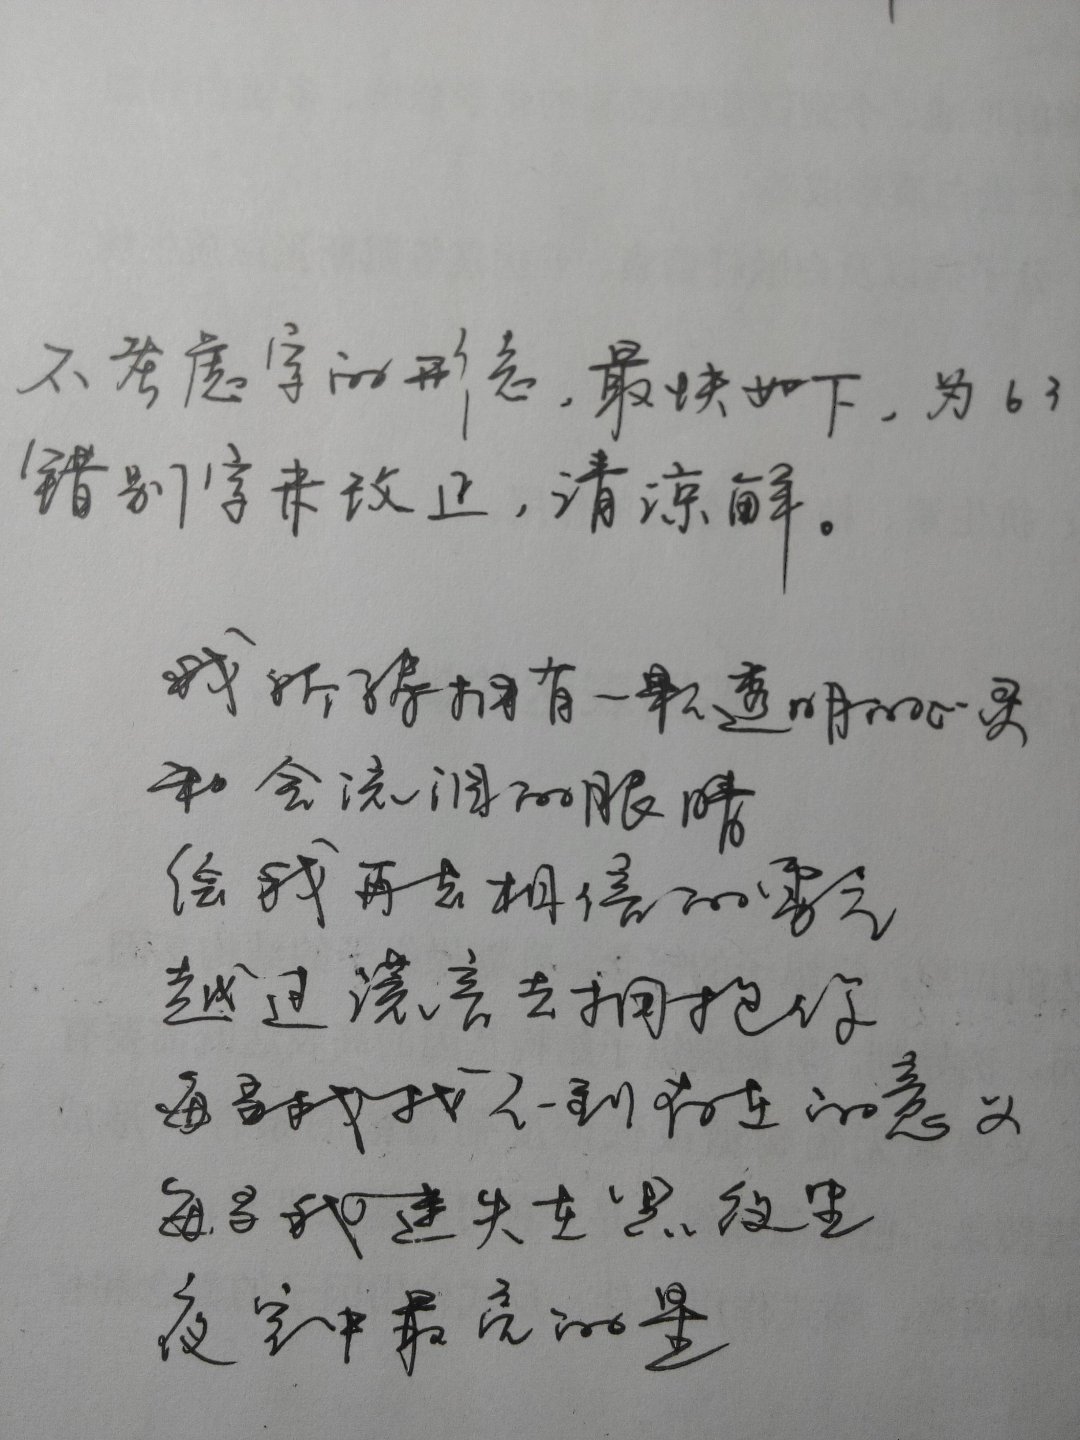 不考虑字的形意，最快如下，为63
错别字来改正，请谅解。
我祈祷拥有一颗透明的心灵
和会流泪的眼睛
给我再去相信的勇气
越过谎言去拥抱你
每当我找不到存在的意义
每当我迷失在黑夜里
夜空中最亮的星